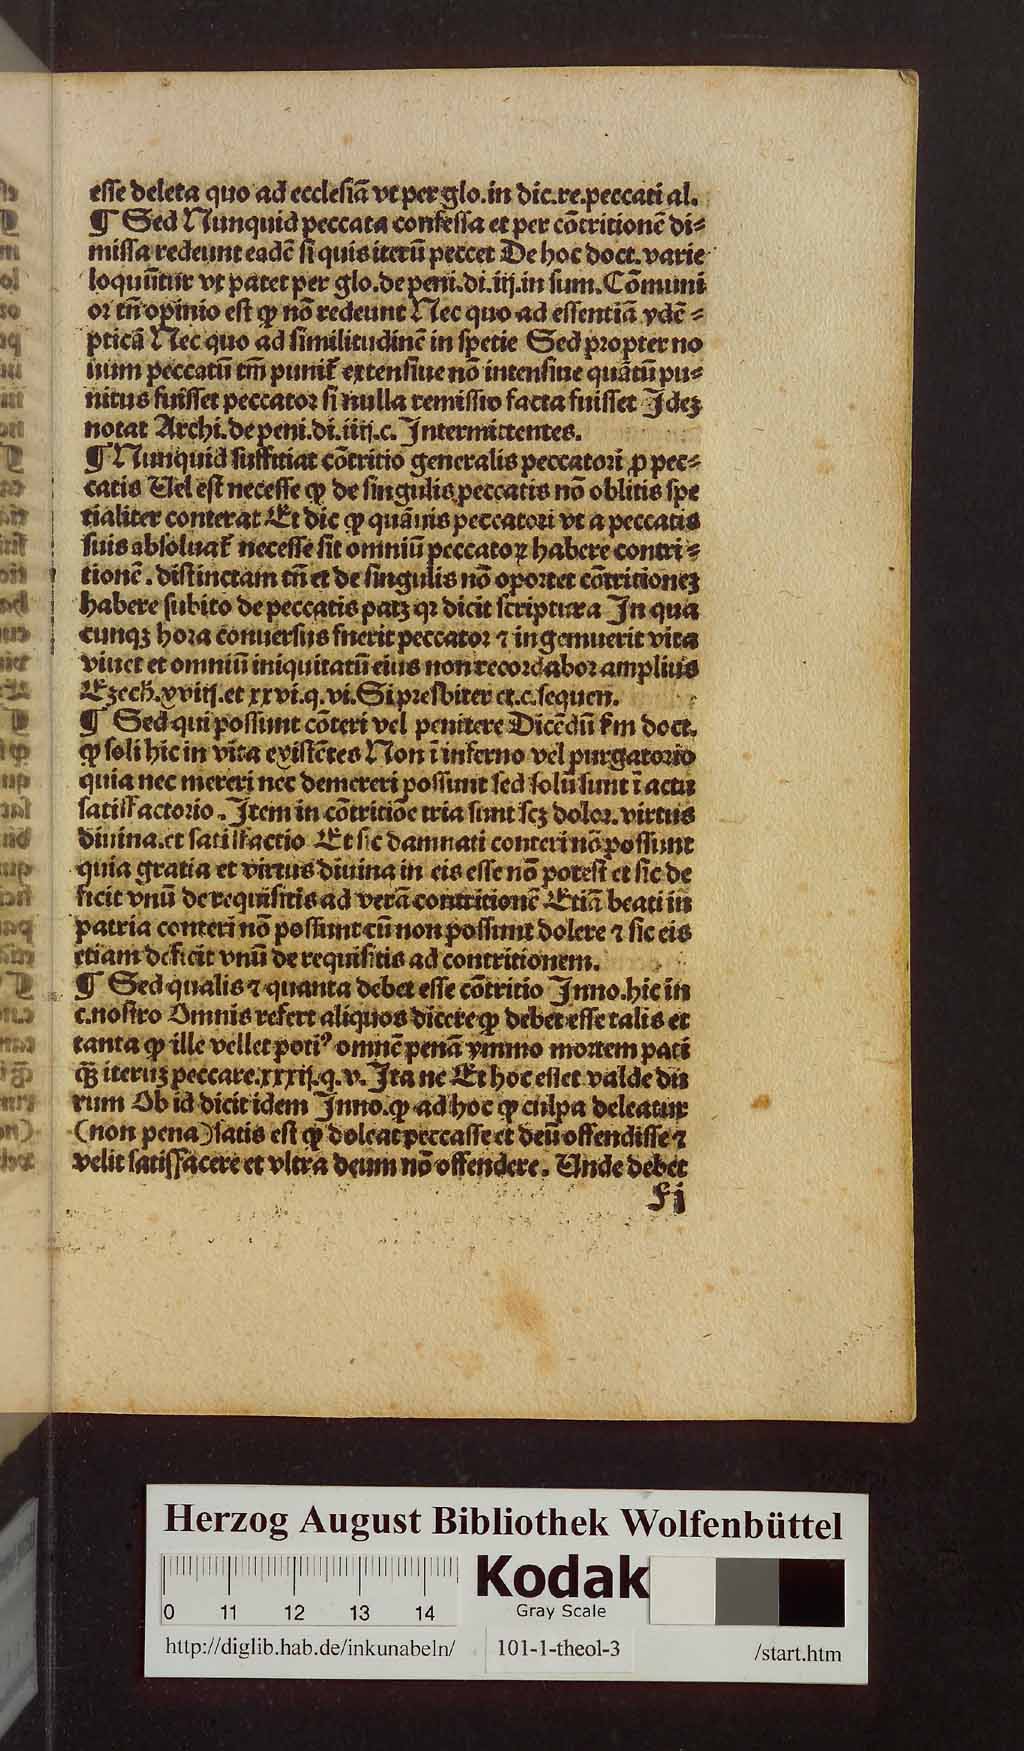 esse deleta quo ad ecclesiā vt per glo.in dic.re.peccati al.
¶ Sed Nunquid peccata confessa et per cōtritionē di⸗
missa redeunt eadē si quis iterū peccet De hoc doct.varie
loquūtur vt patet per glo.de peni.di.iiij.in sum.Cōmuni
or tn̄ opinio est ꝙ nō redeunt Nec quo ad essentiā ydē⸗
pticā Nec quo ad similitudinē in spetie Sed propter no
uum peccatū tm̄ punit᷑ extensiue nō intensiue quātū pu⸗
nitus fuisset peccator si nulla remissio facta fuisset Ideꝫ
notat Archi.de peni.di.iiij.c. Intermittentes.
¶ Nunquid suffitiat cōtritio generalis peccatori ꝓ pec⸗
catis Uel est necesse ꝙ de singulis peccatis nō oblitis spe
tialiter conterat Et dic ꝙ quāuis peccatori vt a peccatis
suis absoluat᷑ necesse sit omniū peccatoꝝ habere contri⸗
tionē. distinctam tn̄ et de singulis nō oportet cōtritioneꝫ
habere subito de peccatis patꝫ qꝛ dicit scriptura In qua
cunqꝫ hora conuersus fuerit peccator ⁊ ingemuerit vita
viuet et omniū iniquitatū eius non recordabor amplius
Ezech.xviij.et xxvi.q.vi.Si presbiter et.c.sequen.
¶ Sed qui possunt cōteri vel penitere Dicēdū s̄m doct.
ꝙ soli hic in vita existētes Non ī inferno vel purgatorio
quia nec mereri nec demereri possunt sed solū sunt ī actu
satisfactorio. Item in cōtritiōe tria sunt scꝫ dolor. virtus
diuina.et satisfactio Et sic damnati conteri nō possunt
quia gratia et virtus diuina in eis esse nō potest et sic de
ficit vnū de requisitis ad verā contritionē Etiā beati in
patria conteri nō possunt cū non possunt dolere ⁊ sic eis
etiam deficit vnū de requisitis ad contritionem.
¶ Sed qualis ⁊ quanta debet esse cōtritio Inno.hic in
c.nostro Omnis refert aliquos dicere ꝙ debet esse talis et
tanta ꝙ ille vellet potiꝰ omnē penā ymmo mortem pati
ꝙ̄ iteruꝫ peccare.xxxij.q.v. Ita ne Et hoc esset valde du
rum Ob id dicit idem Inno.ꝙ ad hoc ꝙ culpa deleatur
(non pena)satis est ꝙ doleat peccasse et deū offendisse ⁊
velit satisfacere et vltra deum nō offendere. Unde debet
si
Herzog August Bibliothek Wolfenbüttel
0 11 12 13 14
Kodak
Gray Scale
http://diglib.hab.de/inkunabeln/
101-1-theol-3
/start.htm